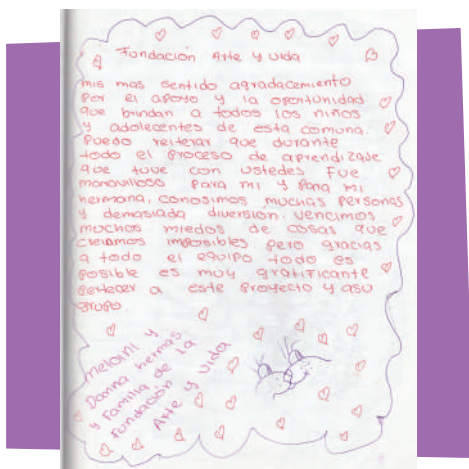 Fundación Arte y vida
mis mas sentido agradacemiento
por el apoyo y la oportunidad
que brindan a todos los niños
y adolecentes de esta comuna.
Puedo reiterar que durante
todo el proceso de aprendizaque
que tuve con ustedes fue
maravilloso para mi y para mi
hermana, conosimos muchas personas
y demasiada diversion. vencimos
muchos miedos de cosas que
creiamos imposibles pero gracias
a todo el equipo todo es
posible es muy gratificante
pertecer a este proyecto y asu
grupo.
Melaini y
Danna hermas
y Familia de la
Fundación
Arte y vida